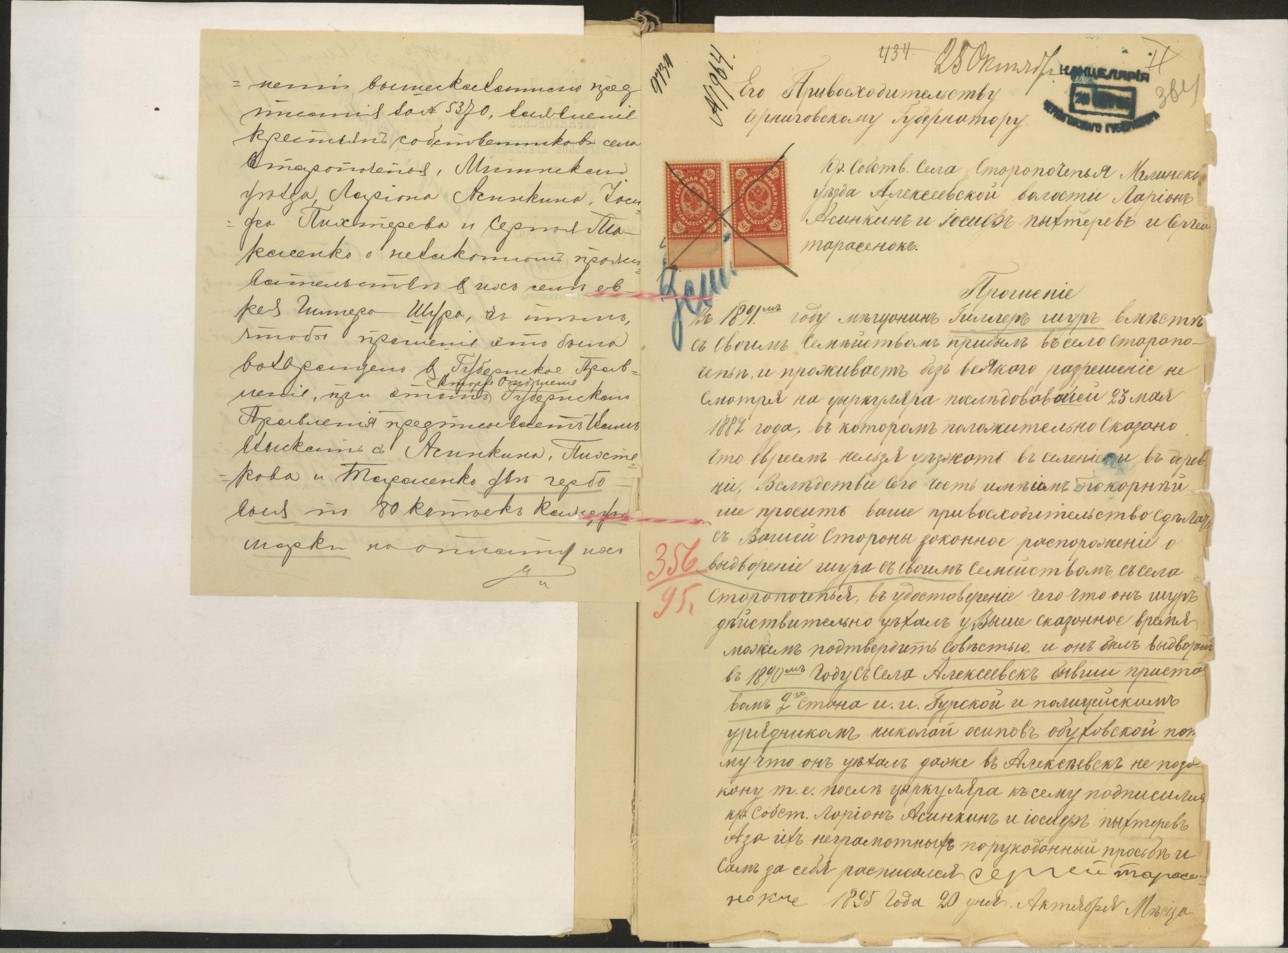 = нетъ вышесказанного пред
писанія за № 5370, заявленіе
крестьянъ собственниковъ села
Старопочепья, Мглинскаго
уѣзда, Ларіона Асинкина, Іоси-
= фа Пихтерева и Сергея Та-
расенко о незаконномъ прожи-
вательствѣ въ ихъ селѣ ев-
рея Гиллера Шура, съ тѣмъ,
чтобы прошеніе это было
возвращено въ Губернское Прав-
леніе, при этомъ Губернскаго
Правленія
взыскать съ Асинкина, Пихте-
= рева и Тарасенко двѣ гербо-
выя въ 80 копѣекъ каждую
марки на отвѣтъ ихъ
434 25 Октября
КАНЦЕЛЯРІЯ
ЧЕРНИГОВСКАГО ГУБЕРНАТОРА
Его Привосходительству
Черниговскому Губернатору
Кр. Собств. Села Старопочепья Мглинск.
уезда Алексеевской волости Ларіонъ
Асинкинъ и Іосифъ пыхтеревъ и Сргей
тарасенокъ.
Прошеніе
Въ 1891мъ году мѣщунинъ Гиллеръ шуръ вмѣстѣ
съ Своимъ Семѣйствомъ прибылъ въ село Старопо-
чепье, и проживаетъ безъ всякого разрешеніе не
Смотря на цыркуляра послѣдовавшей 23 мая
1882 года, въ которомъ положительно Сказано
что евреемъ нельзя уѣзжать въ селеніи и въ дерев
ніи, Вслѣдствіе Сего честь имѣемъ покорнѣй
ше просить ваше привосходительство Сдѣлать
съ Вашей Стороны законное распоряженіе о
выдвореніе шура съ Своимъ Семѣйствомъ съ села
Старопочепья, въ удостовереніе чего что онъ шуръ
дѣйствительно уѣхалъ у Выше Сказонное время
можемъ подтвердить Совѣстью и онъ былъ выдворенъ
въ 1890мъ Году съ Села Алексеевскъ бывши приста-
вомъ 2го Стона и.и. Гурской и полицейскимъ
урядникомъ николай осиповъ обуховской пото
му что онъ уѣхалъ даже въ Алексѣевскъ не поза
кону т.е. послѣ цыркуляра къ сему подписались
кр. Собст. Ларіонъ Асинкинъ и іосифъ пыхтеревъ
Аза ихъ неграмотныхъ порукоданный просьбѣ и
Самъ за себя расписался Сергей тарасе-
нокъ 1895 года 20 дня Актября Мѣсца
356
95 г.